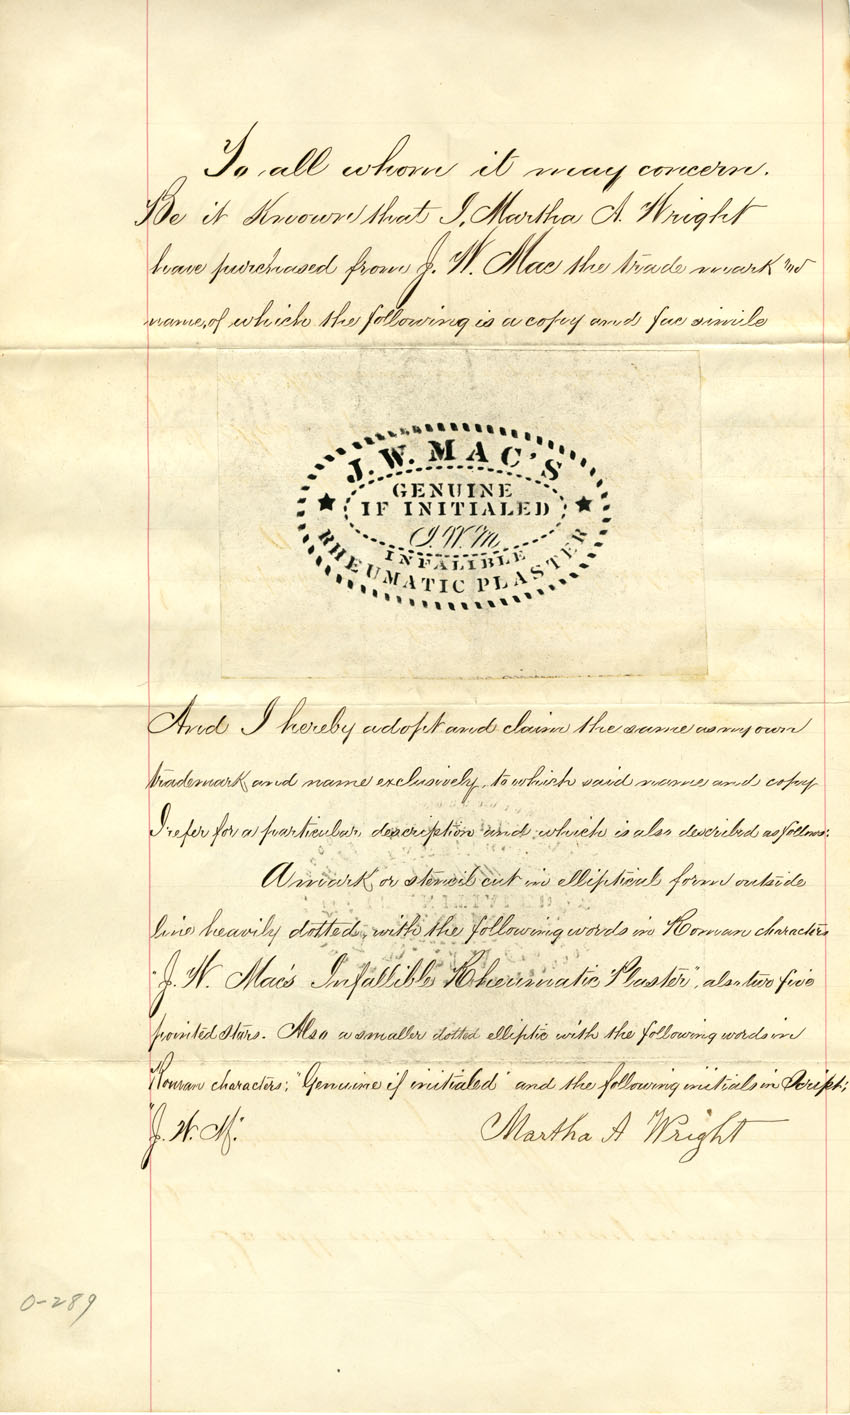 To all whom it may concern.
Be it Known that I, Martha A. Wright
have purchased from J. W. Mac the trade mark and
name, of which the following is a copy and fac simile
J. W. MAC'S
GENUINE
IF INITIALED
J. W. M.
INFALIBLE
RHEUMATIC PLASTER
And I hereby adopt and claim the same as my own
trademark and name exclusively, to which said name and copy
I refer for a particular description and which is also described as follows:
A mark or stencil cut in elliptical form outside
line heavily dotted, with the following words in Roman characters
"J. W. Mac's Infallible Rheumatic Plaster", also two five
pointed stars. Also a smaller dotted elliptic with the following words in
Roman characters; "Genuine if initialed" and the following initials in Script;
"J. W. M."
Martha A Wright
0-289